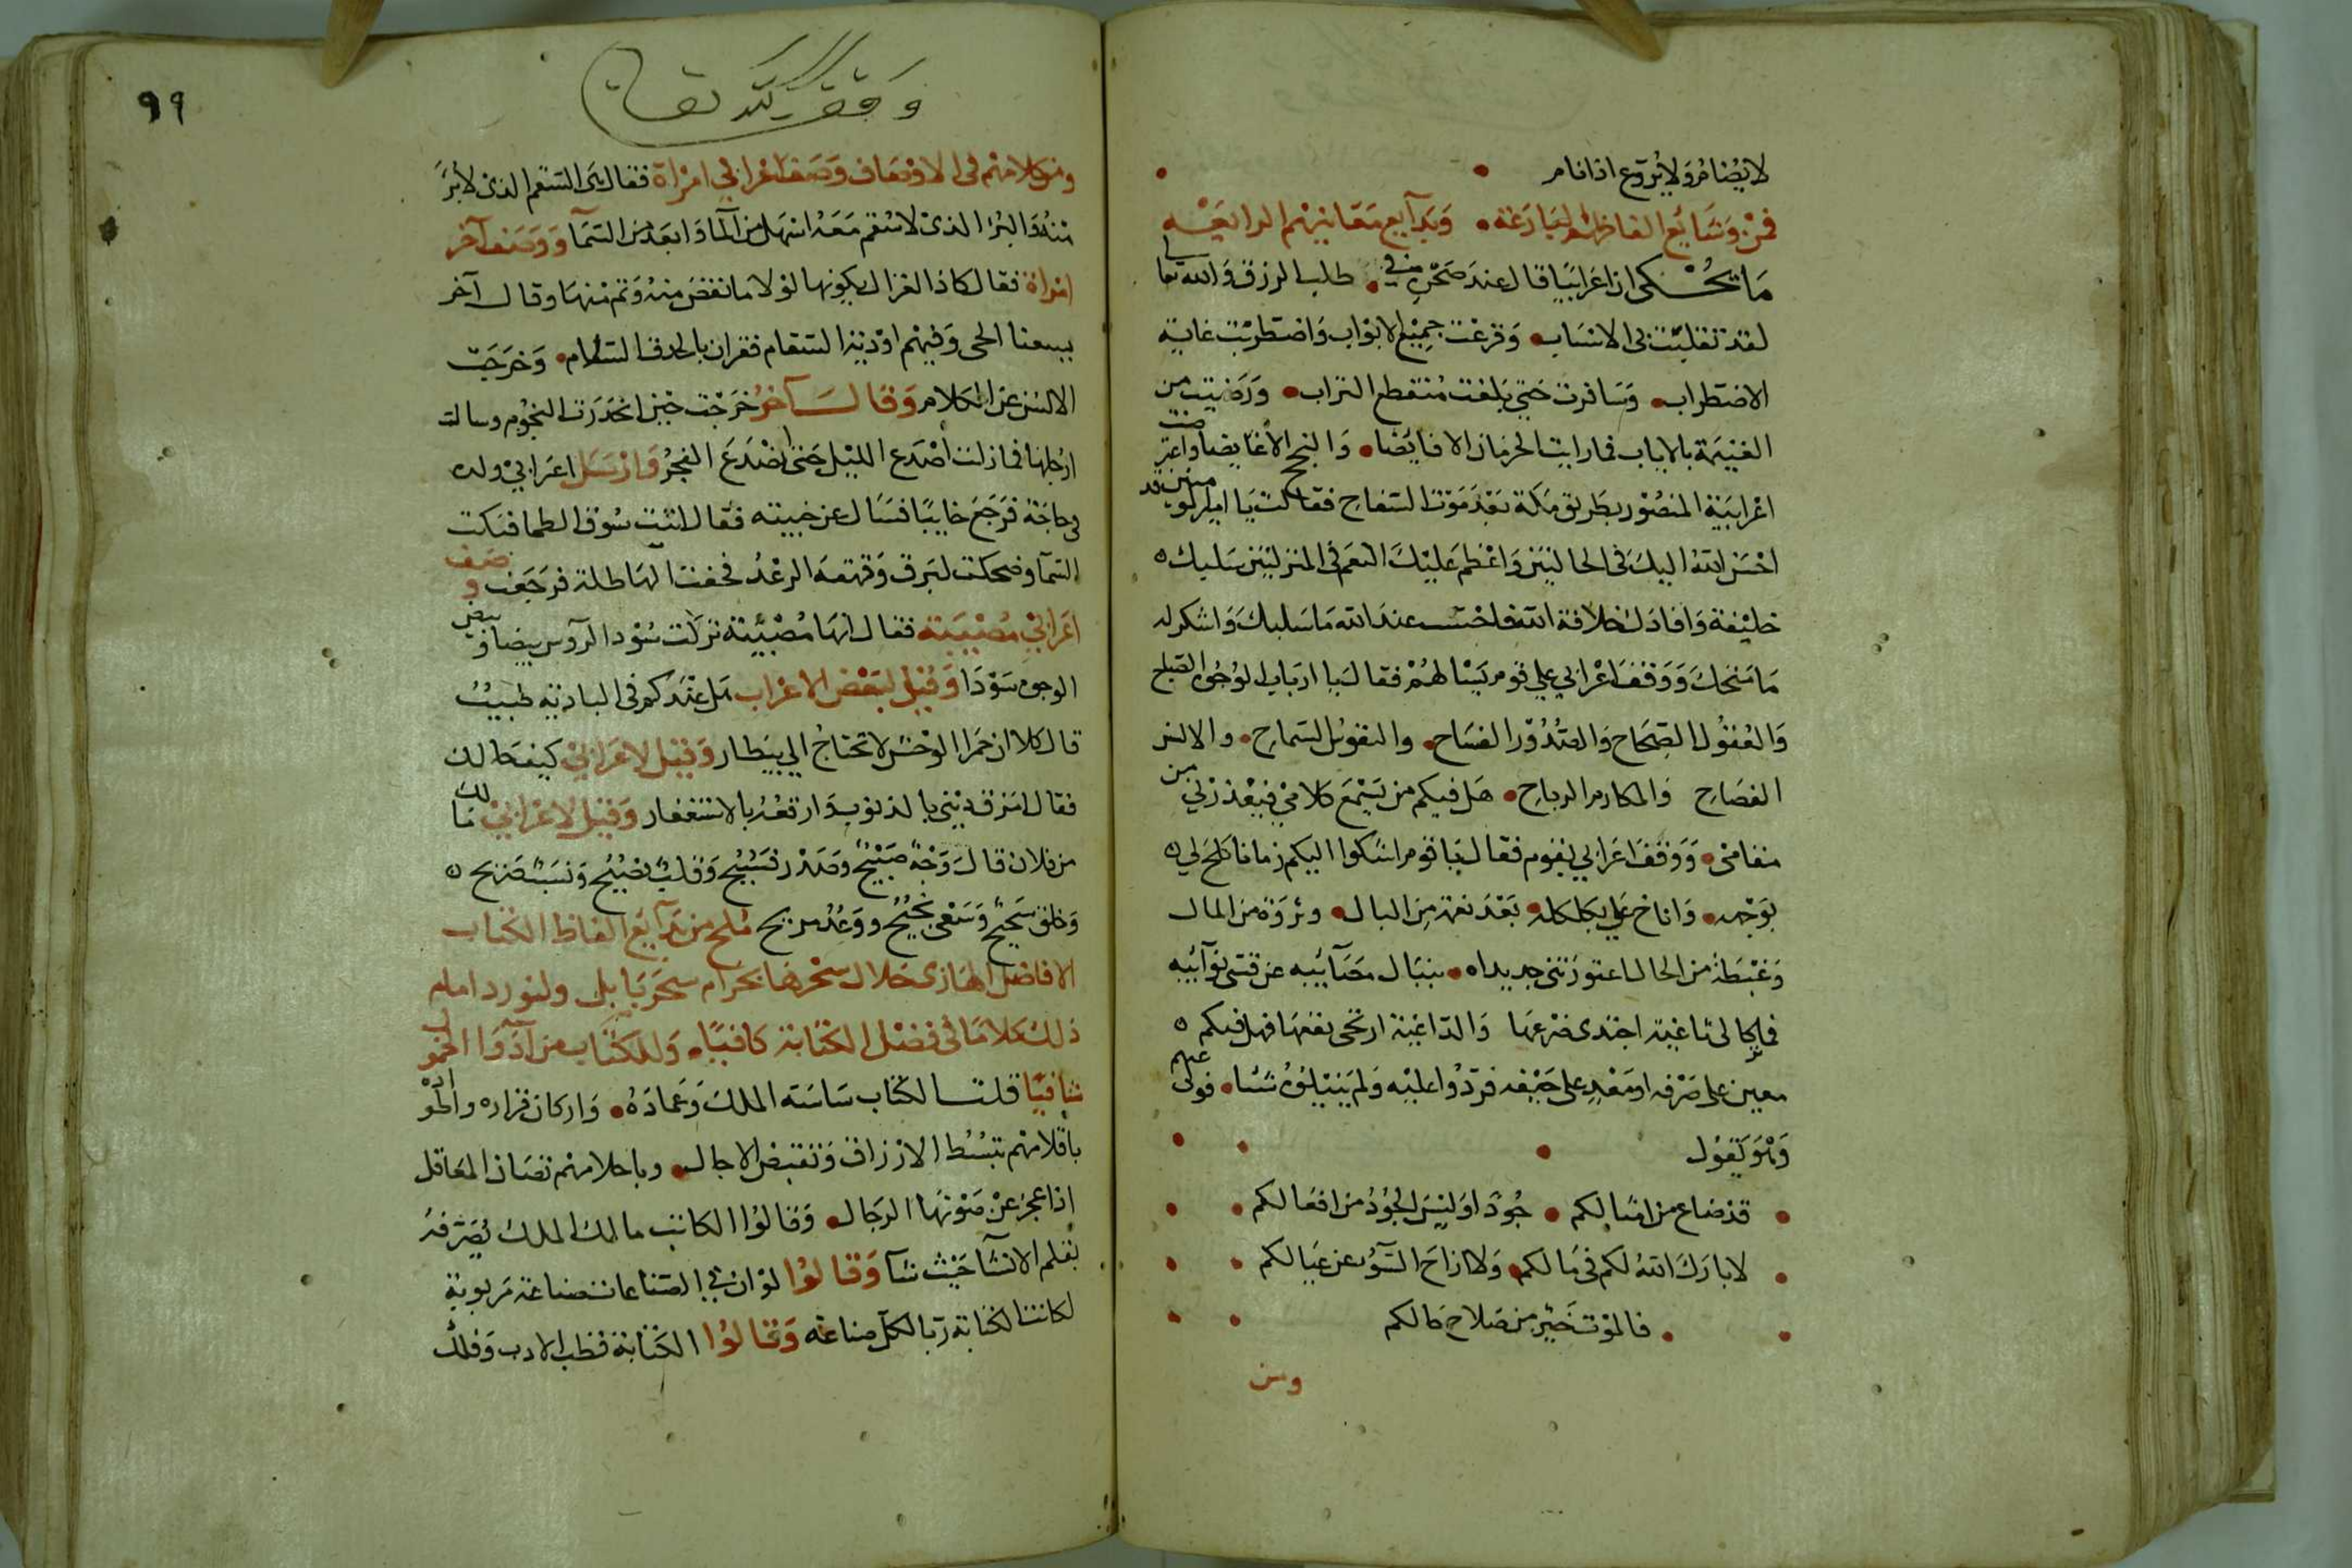 لا يضام ولا يروع اذا نام
فمن وشائع الفاظهم البارعة وبدايع معانيهم الرائعة
ما يحكى ان اعرابيا قال عند ضجره في طلب الرزق والله تعا
لقد تقلبت بي الانساب وقرعت جميع الابواب واضطربت غاية
الاضطراب وسافرت حتى بلغت منقطع التراب ورضيت من
الغنيمة بالاياب فما رايت الحرمان الا فايضا والنجح الا غايضا واعترضت
اعرابية المنصور بطريق مكة بعد موت السفاح فقالت يا امير المومنين قد
احسن الله اليك في الحالين واعظم عليك النعم في المنزلين سلبك
خليفة وافادك خلافة الله فاحتسب عند الله ما سلبك واشكر له
ما منحك ووقف اعرابي على قوم يسالهم فقال يا ارباب الوجوه الصباح
والعقول الصحاح والصدور الفساح والنفوس السماح والالسن
الفصاح والمكارم الرباح هل فيكم من يسمع كلامي فيعذرني من
مقامي ووقف اعرابي بقوم فقال يا قوم اشكوا اليكم زمانا كلح لي
بوجهه واناخ علي بكلكله بعد نعمة من البال وثروة من المال
وغبطة من الحال اعتورتني جديداه بنبال مصآئبه عن قسي نوآئبه
فما بقالي ثاغية اجتدي ضرعها والراغية ارتجى نفعها فهل فيكم
معين على صرفه او معد على حيفه فردوا عليه ولم ينيلوه شئا فولى عنهم
وهو يقول
قد ضاع من امثالكم جودا وليس الجود من افعالكم
لا بارك الله لكم في مالكم ولا ازاح السوء عن عيالكم
فالموت خير من صلاح حالكم
ومن
وقف لله تعالى
٩٩
ومن كلامهم في الاوصاف وصف اعرابي امراة فقال هى السقم الذى لا برء
منه والبرء الذى لا سقم معه اسهل من المآ وابعد من السمآ ووصف آخر
امراة فقال كاد الغزال يكونها لولا ما نقص منه وتم منها وقال آخر
الحى وفيهم ادوية السقام فقران بالحدق السلام وخرجت
الالسن عن الكلام وقال آخر خرجت حين انحدرت النجوم وسالت
ارجلها فما زلت اصدع الليل حتى انصدع الفجر وارسل اعرابي ولده
في حاجة فرجع خايبا فسال عن خيبته فقال اتيت سوق الظما فبكت
السمآ وضحكت البرق وقهقه الرعد فخفت الهاطلة فرجعت ووصف
اعرابي مصيبة فقال انها مصيبة تركت سود الروس بيضا وبيض
الوجوه سودا وقيل لبعض الاعراب هل عندكم في البادية طبيب
قال كلا ان حمر الوحش لا تحتاج الي بيطار وقيل لاعرابي كيف حالك
فقال امزق ديني بالذنوب وارقعه بالاستغفار وقيل لاعرابي ما لك
من فلان قال وجه صبيح وصدر فسيح وقلب نصيح ونسب صريح
وخلق سجيح وسعى نجيح ووعد مريح ملح من بدآيع الفاظ الكتاب
الافاضل الهازى حلال سحرها بحرام سحر بابل ولنورد امام
ذلك كلاما في فضل الكتابة كافيا وللكتاب من آدوا الخمول
شافيا قلت الكتاب ساسة الملك وعماده واركان قراره
باقلامهم تبسط الارزاق وتقبض الاجال وباحلامهم تصان المعاقل
اذا عجز عن صونها الرجال وقالوا الكاتب مالك الملك يصرفه
بقلم الانشآ حيث شآ وقالوا لو ان في الصناعات صناعة مربوبة
لكانت الكتابة ربا لكل صناعة وقالوا الكتابة قطب الادب وفلك